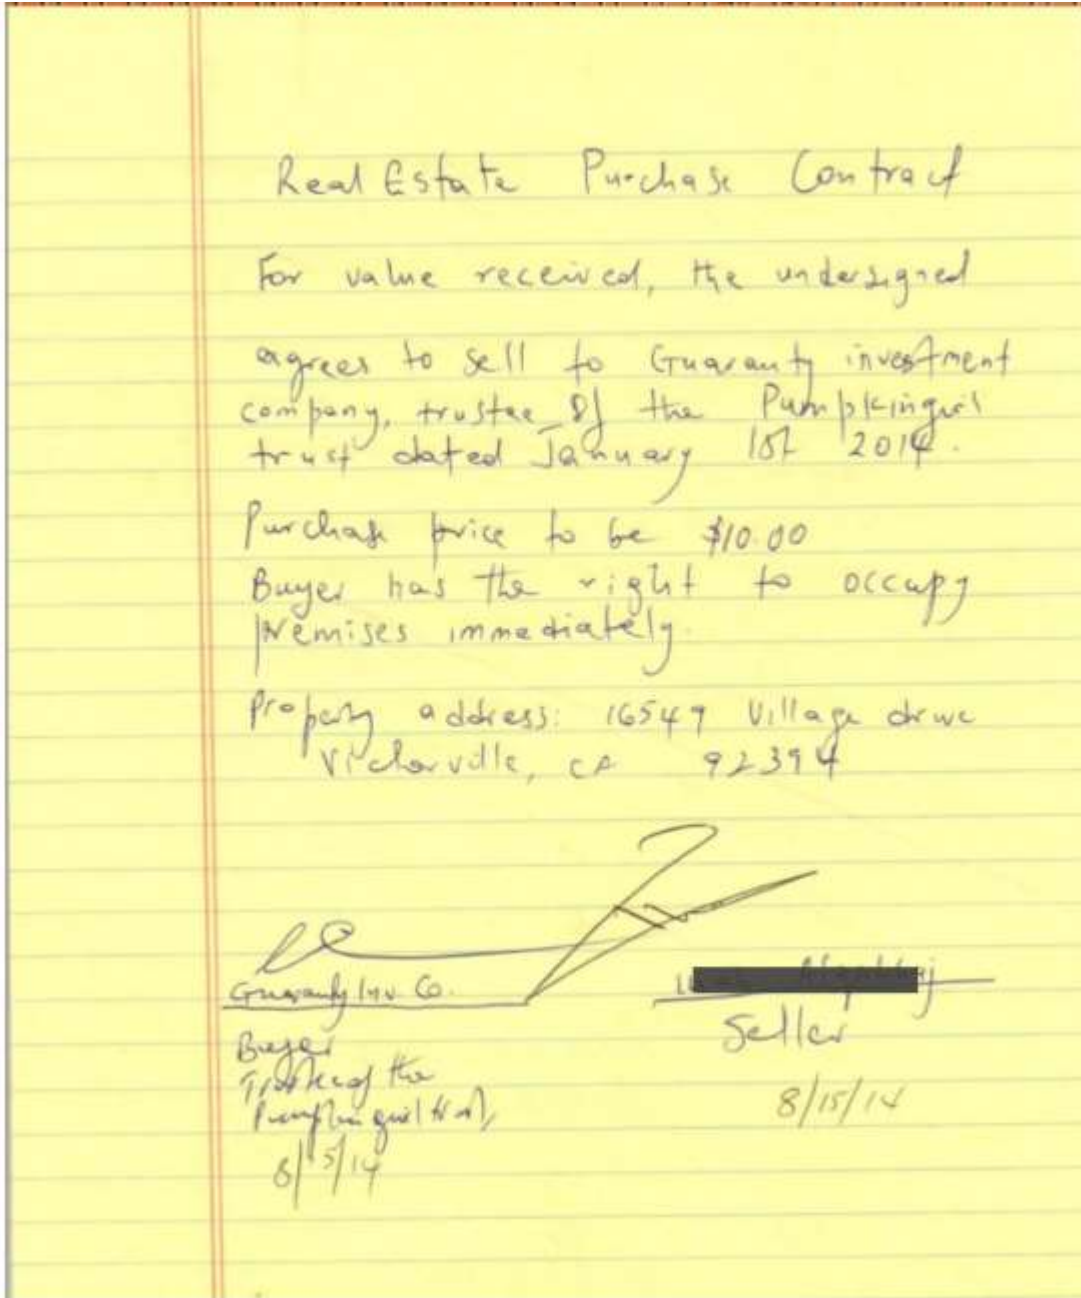 Real Estate Purchase Contract
For value received, the undersigned
agrees to sell to Guaranty investment
company, trustee of the Pumpkingirl
trust dated January 1st 2014.
Purchase price to be $10.00
Buyer has the right to occupy
premises immediately.
Property address: 16547 Village drive
Victorville, CA 92394
Guaranty Inv. Co.
Seller
Buyer
Trustee of the
Pumpkin girl trust,
8/15/14
8/15/14